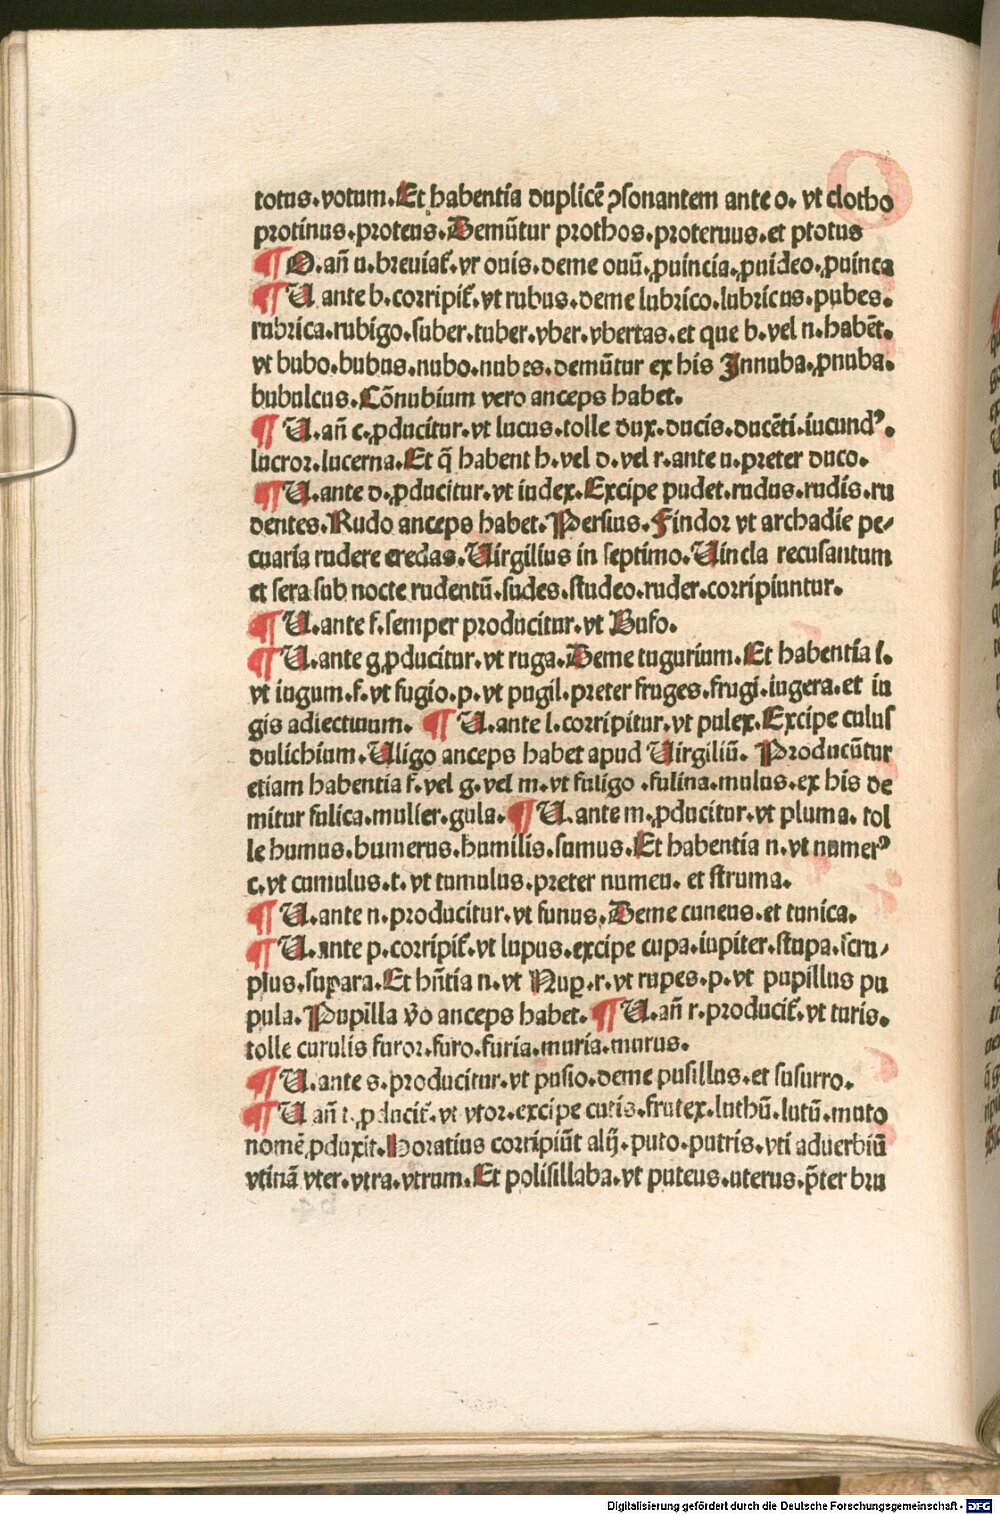 totus.votum.Et habentia duplicē ꝯsonantem ante o. vt clotho
protinus.proteus.Demūtur prothos.proteruus.et ptotus
¶ O.añ u.breuiat̄.vr ouis.deme ouū.ꝓuincia.ꝓuideo.ꝓuinca
¶ U ante b.corripit̄.vt rubus.deme lubrico.lubricus.pubes.
rubrica.rubigo.suber.tuber.vber.vbertas.et que b.vel n.habēt.
vt bubo.bubus.nubo.nubes.demūtur ex his Innuba.ꝓnuba.
bubulcus.Cōnubium vero anceps habet.
¶ U.añ c.ꝓducitur.vt lucus.tolle dux.ducis.ducēti.iucundꝰ.
lucror.lucerna.Et q̄ habent h.vel d.vel r.ante u.preter duco.
¶ U.ante d.ꝓducitur.vt iudex.Excipe pudet.rudus.rudis.ru
dentes.Rudo anceps habet.Persius.Findor vt archadie pe/
cuaria rudere credas.Uirgilius in septimo.Uincla recusantum
et sera sub nocte rudentū.sudes.studeo.ruder.corripiuntur.
¶ U.ante f.semper producitur.vt Bufo.
¶ U.ante g.ꝓducitur.vt ruga.Deme tugurium.Et habentia i.
vt iugum.f.vt fugio.p.vt pugil.preter fruges.frugi.iugera.et iu
gis adiectiuum. ¶ U.ante l.corripitur.vt pulex.Excipe culus
dulichium.Uligo anceps habet apud Uirgiliū. Producūtur
etiam habentia f.vel g.vel m.vt fuligo .fulina.mulus.ex his de
mitur fulica.mulier.gula.¶ U.ante m.ꝓducitur.vt pluma. tol
le humus.humerus.humilis.sumus.Et habentia n.vt numerꝰ
c.vt cumulus.t.vt tumulus.preter numen. et struma.
¶ U.ante n.producitur.vt funus.Deme cuneus.et tunica.
¶ U.ante p.corripit̄.vt lupus.excipe cupa.iupiter.stupa.scru/
plus.supara.Et hn̄tia n.vt Nuꝑ.r.vt rupes.p.vt pupillus pu
pula.Pupilla v̄o anceps habet.¶ U.añ r.producit̄.vt turis.
tolle curulis furor.furo.furia.muria.murus.
¶ U.ante s.producitur.vt pusio.deme pusillus.et susurro.
¶ U añ t.ꝓducit̄.vt vtor.excipe cutis.frutex.luthū.lutū.muto
nomē ꝓduxit.Horatius corripiūt alij.puto.putris.vti aduerbiū
vtinā vter.vtra.vtrum.Et polisillaba.vt puteus.uterus.p̄ter bru
Digitalisierung gefördert durch die Deutsche Forschungsgemeinschaft - DFG